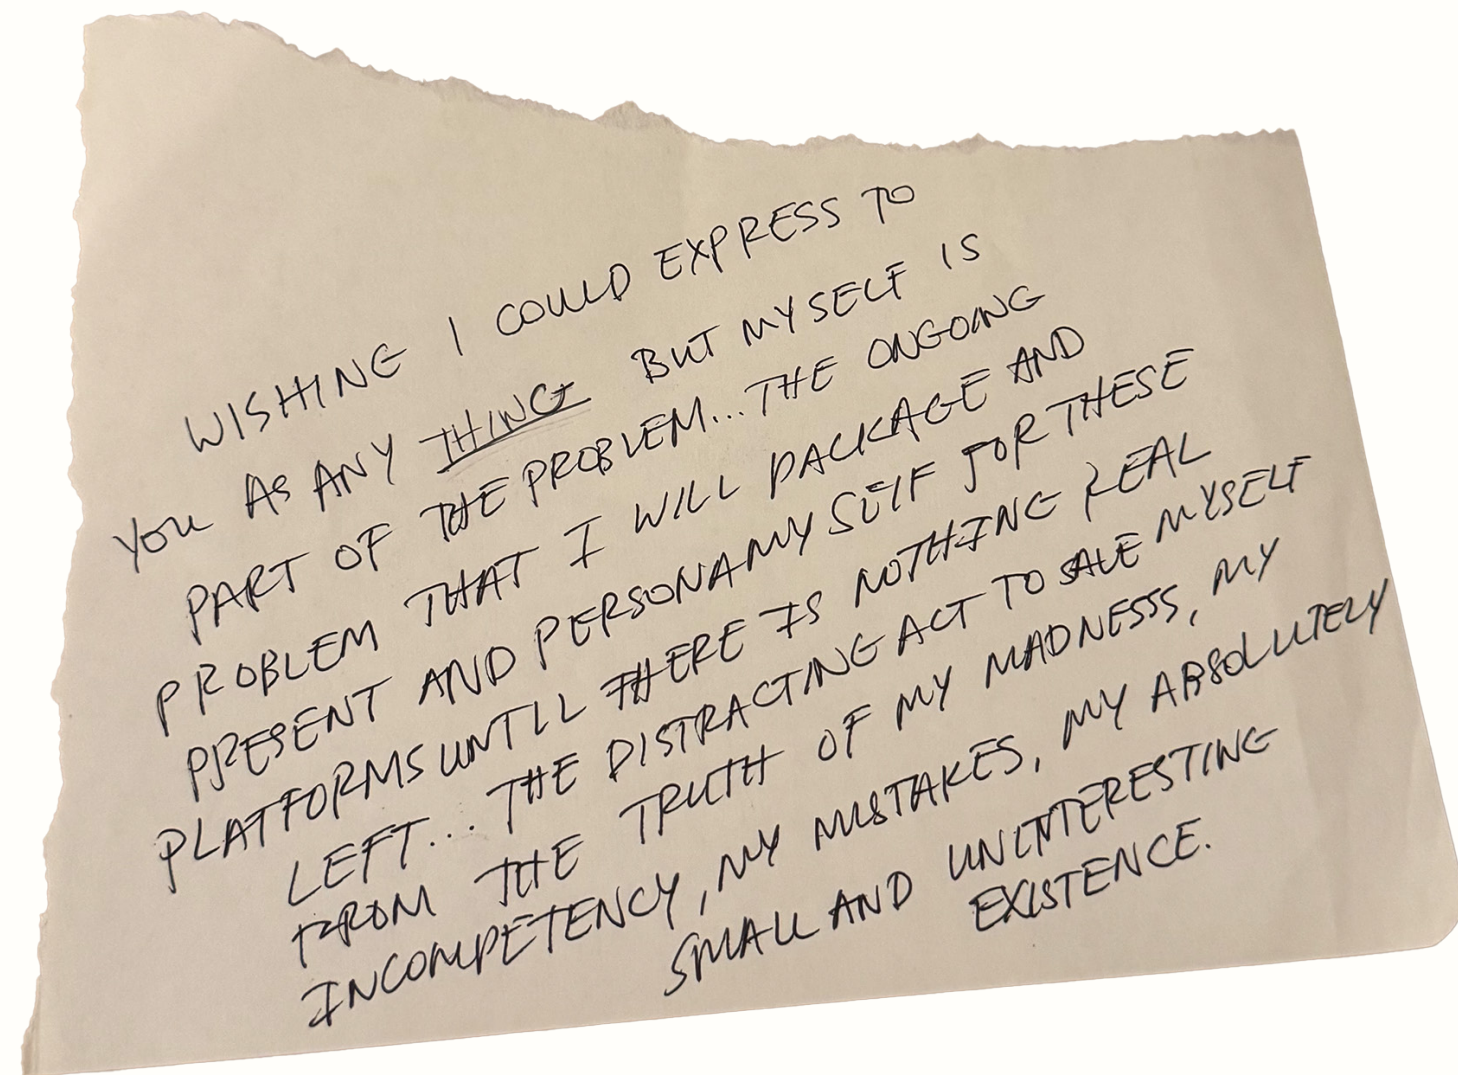 WISHING I COULD EXPRESS TO
YOU AS ANY THING BUT MYSELF IS
PART OF THE PROBLEM... THE ONGOING
PROBLEM THAT I WILL PACKAGE AND
PRESENT AND PERSONA MY SELF FOR THESE
PLATFORMS UNTIL THERE IS NOTHING REAL
LEFT... THE DISTRACTING ACT TO SAVE MYSELF
FROM THE TRUTH OF MY MADNESS, MY
INCOMPETENCY, MY MISTAKES, MY ABSOLUTELY
SMALL AND UNINTERESTING
EXISTENCE.